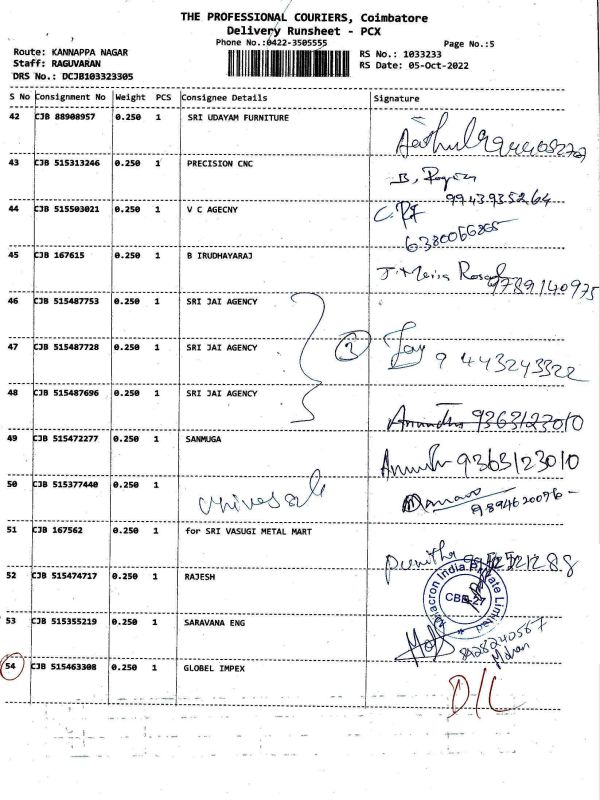 THE PROFESSIONAL COURIERS, Coimbatore
Delivery Runsheet - PCX
Phone No.:0422-3505555
Page No.:5
Route: KANNAPPA NAGAR
RS No.: 1033233
Staff: RAGUVARAN
RS Date: 05-Oct-2022
DRS No.: DCJB103323305
S No Consignment No Weight PCS Consignee Details Signature
42 CJB 88908957 0.250 1 SRI UDAYAM FURNITURE
43 CJB 515313246 0.250 1 PRECISION CNC
9943935264
44 CJB 515503021 0.250 1 V C AGECNY
6380066865
45 CJB 167615 0.250 1 B IRUDHAYARAJ
9789140975
46 CJB 515487753 0.250 1 SRI JAI AGENCY
47 CJB 515487728 0.250 1 SRI JAI AGENCY 3 Jay 9443243322
48 CJB 515487696 0.250 1 SRI JAI AGENCY
9363123010
49 CJB 515472277 0.250 1 SANMUGA 9363123010
50 CJB 515377440 0.250 1 universal
9894620096
51 CJB 167562 0.250 1 for SRI VASUGI METAL MART
Punitha
52 CJB 515474717 0.250 1 RAJESH
53 CJB 515355219 0.250 1 SARAVANA ENG
8428240567
Mohan
54 CJB 515463308 0.250 1 GLOBEL IMPEX
D/L